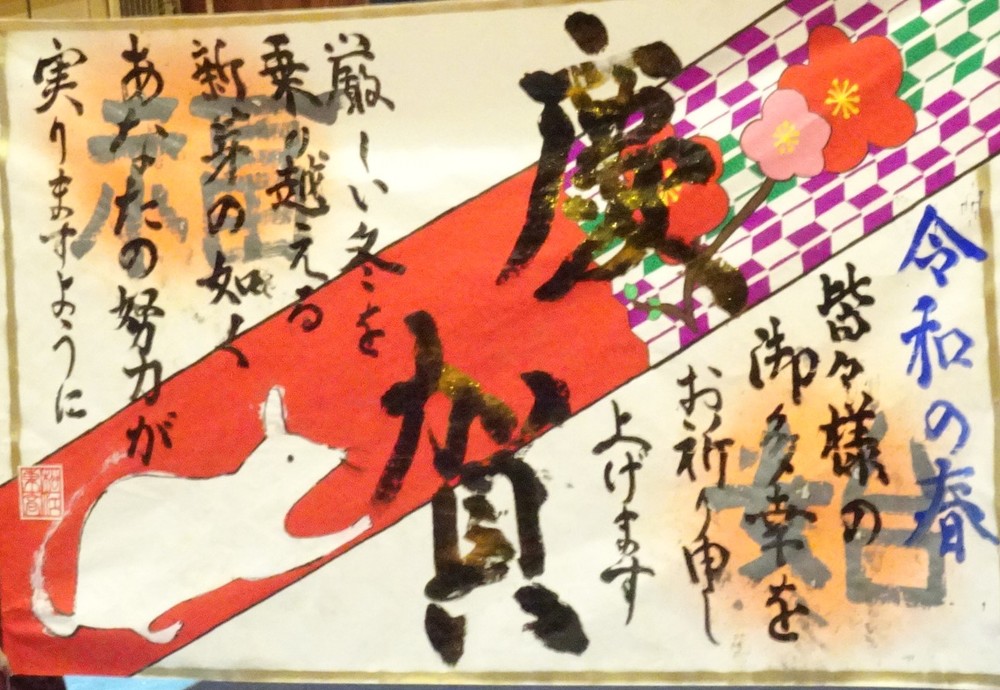 令和の春
皆々様の
御多幸を
お祈り申し
上げます
慶賀
厳しい冬を
乗り越える
新芽の如く
あなたの努力が
実りますように